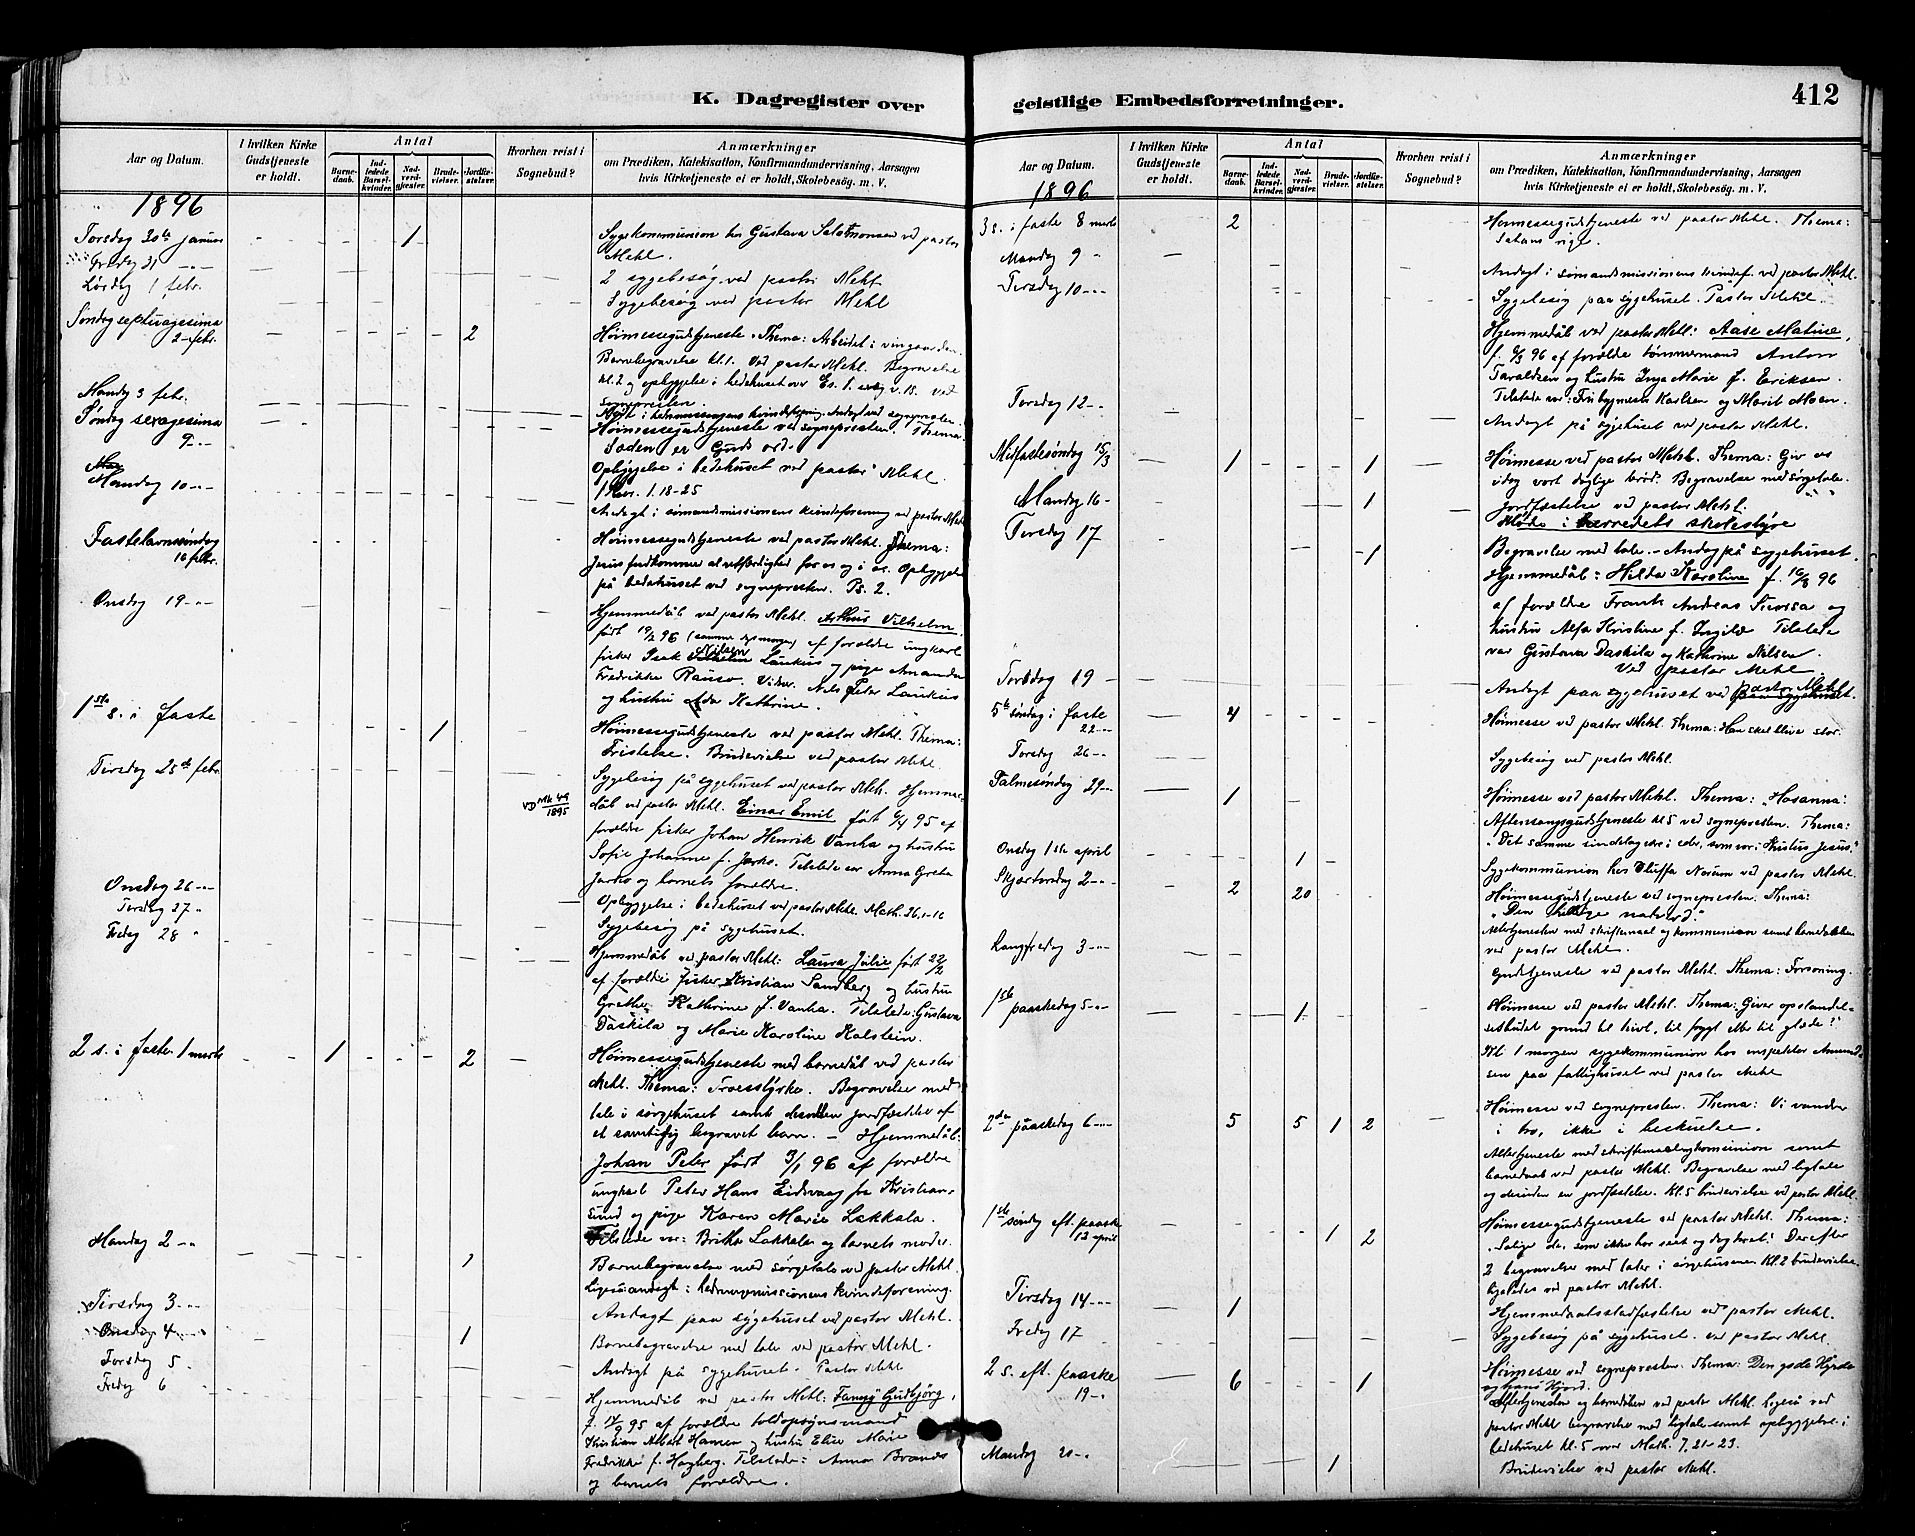 K. Dagregister over
Aar og Datum.
I hvilken Kirke
Gudstjeneste
er holdt.
Antal
Barne-
daab.
Ind-
ledede
Barsel-
kvinder.
Nad-
verd-
gjester.
Brude-
vielser.
Jordfæ-
stelser.
Hvorhen reist i
Sognebud?
Anmærkninger
om Prædiken, Katekisation, Konfirmandundervisning, Aarsagen
hvis Kirketjeneste ei er holdt, Skolebesøg. m. V.
1896
Torsdag 30te januar
1
Sygekommunion hos Gustava Salomonsen ved pastor
Mehl.
Fredag 31
2 sygebesøg ved pastor Mehl
Lørdag 1 febr.
Sygebesøg ved pastor Mehl
Søndag septuagesima
2 febr.
2
Høimessegudstjeneste. Thema: Arbeidet i vingaarden.
Barnebegravelse kl. 1. Ved pastor Mehl. Begravelse
kl. 2 og opbyggelse i bedehuset over Es. 1. v. 18. ved
sognepresten.
Mandag 3 febr.
Andagt ved sognepresten.
Søndag sexagesima
9
Høimessegudstjeneste ved sognepresten. Thema:
Sæden er Guds ord.
Mandag 10
Opbyggelse i bedehuset ved pastor Mehl.
1. 18-25
Andagt i sømandsmissionens kvindeforening ved pastor Mehl
Fastelavnssøndag
16 febr.
Høimessegudstjeneste ved pastor Mehl. Thema:
Jesus fuldkommer al retfærdighed for os og i os. Opbyggelse
på bedehuset ved sognepresten. Ps. 2.
Onsdag 19
Hjemmedåb ved pastor Mehl. Arthur Vilhelm,
født 19/2 96 (samme dags morgen) af forældre ungkarl
fisker Isak Nilsen Laukus og pige Amanda
Fredrikke Rauso. Vidner: Nils Peter Laukus
og hustru Ada Kathrine.
1ste s. i faste
1
Høimessegudstjeneste ved pastor Mehl. Thema:
Fristelse. Brudevielse ved pastor Mehl.
Tirsdag 25de febr.
Sygebesøg på sygehuset ved pastor Mehl. Hjemme-
VD Mk 49
1895
dåb ved pastor Mehl. Einar Emil født 6/4 95 af
forældre fisker Johan Henrik Vanha og hustru
Sofie Johanne f. Jarko. Tilstede var Anna Greta
Jarko og barnets forældre.
Onsdag 26
Opbyggelse i bedehuset ved pastor Mehl. Math. 26, 1-16
Torsdag 27
Sygebesøg på sygehuset.
Fredag 28
Hjemmedåb ved pastor Mehl: Laura Julie født 22/2
af forældre fisker Kristian Sandberg og hustru
Grethe Kathrine f. Vanha. Tilstede: Gustava
Daskila og Marie Karoline Kalstein.
2 s. i faste 1 marts
1
2
Høimessegudstjeneste med barnedåb ved pastor
Mehl. Thema: Troesstyrke. Begravelse med
tale i sørgehuset samt desuden jordfæstelse af
et samtidig begravet barn. – Hjemmedåb:
Johan Peter født 3/1 96 af forældre
ungkarl Peter Hans Eidsvaag fra Kristian-
sund og pige Karen Marie Lakkala.
Tilstede var: Britha Lakkala og barnets moder.
Mandag 2
1
Barnebegravelse med sørgetale ved pastor Mehl.
Ligesaa andagt i hedningemissionens kvindeforening.
Tirsdag 3
Andagt paa sygehuset ved pastor Mehl.
Onsdag 4
1
Barnebegravelse med tale ved pastor Mehl.
Torsdag 5
Andagt på sygehuset. Pastor Mehl
Fredag 6
Hjemmedåb ved pastor Mehl: Fanny Gudbjörg,
f. 17/9 95 af forældre toldopsynsmand
Kristian Albert Hansen og hustru Elise Marie
Fredrikke f. Hagberg. Tilstede: Anna Brands
og barnets forældre.
geistlige Embedsforretninger.
412
Aar og Datum.
I hvilken Kirke
Gudstjeneste
er holdt.
Antal
Barne-
daab.
Ind-
ledede
Barsel-
kvinder.
Nad-
verd-
gjester.
Brude-
vielser.
Jordfæ-
stelser.
Hvorhen reist i
Sognebud?
Anmærkninger
om Prædiken, Katekisation, Konfirmandundervisning, Aarsagen
hvis Kirketjeneste ei er holdt, Skolebesøg m. V.
1896
3 s. i faste 8 marts
2
Høimessegudstjeneste ved pastor Mehl. Thema:
Satans rige.
Mandag 9
Andagt i sømandsmissionens kvindef. ved pastor Mehl.
Tirsdag 10
Sygebesøg paa sygehuset. Pastor Mehl.
Hjemmedåb ved pastor Mehl: Aase Matine,
f. 6/3 96 af forældre tømmermand Anton
Taraldsen og hustru Inga Marie f. Eriksen.
Tilstede var: Karlsen og Marit Moen.
Torsdag 12
Andagt på sygehuset ved pastor Mehl.
Midfastesøndag 15/3
1
1
Høimesse ved pastor Mehl. Thema: Giv os
idag vort daglige brød. Begravelse med sørgetale.
Mandag 16
1
Jordfæstelse ved pastor Mehl.
Møde i herredets skolestyre
Tirsdag 17
1
Begravelse med tale. – Andagt på sygehuset.
Hjemmedåb: Hilda Karoline f. 16/3 96
af forældre Frank Andreas og
hustru Alfa Kristine f. Tilstede
var Gustava Daskila og Kathrine Nilsen.
Ved pastor Mehl
Torsdag 19
Andagt paa sygehuset ved pastor Mehl.
5te søndag i faste
22
4
Høimesse ved pastor Mehl. Thema: Han skal blive stor.
Torsdag 26
Sygebesøg ved pastor Mehl.
Palmesøndag 29
1
Høimesse ved pastor Mehl. Thema: "Hosanna:
Aftensangsgudstjeneste kl 5 ved sognepresten. Thema:
"Det samme sindelag være i eder, som var i Kristus Jesus."
Onsdag 1ste april
1
Sygekommunion hos Oluffa Norum ved pastor Mehl.
Skjærtorsdag 2
2
20
Høimessegudstjeneste ved sognepresten. Thema:
"Den hellige nadverd."
Altertjenesten med skriftemaal og kommunion samt barnedåben
ved pastor Mehl.
Langfredag 3
Gudstjeneste ved pastor Mehl. Thema: Forsoning.
1ste paaskedag 5
1
Høimesse ved pastor Mehl. Thema: Giver opstandel-
sesbudet grund til tvivl, til frygt eller til glæde?
Kl 1 morgen sygekommunion hos inspektør Amund-
sen paa fattighuset ved pastor Mehl
2den påaskedag 6
5
5
1
2
Høimesse ved sognepresten. Thema: Vi vandre
i tro, ikke i beskuelse.
Altertjeneste med skriftemaal og kommunion samt
barnedaab ved pastor Mehl. Begravelse med ligtale
og desuden en jordfæstelse. Kl. 5 brudevielse ved pastor Mehl.
1ste søndag eft. paaske
13 april
1
2
Høimessegudstjeneste ved pastor Mehl. Thema:
"Salige de, som ikke har seet og dog troet! Derefter
2 begravelser med taler i sørgehusene. Kl. 2 brudevielse
ligeledes ved pastor Mehl.
Tirsdag 14
1
Hjemmedaabsstadfæstelse ved pastor Mehl.
Fredag 17
Sygebesøg på sygehuset. ved pastor Mehl.
2 s. eft. paaske
19
6
1
Høimesse ved sognepresten. Thema: Den gode Hyrde
og hans Hjord.
Altertjenesten og barnedåben ved pastor Mehl. Ligeså ved
pastor Mehl begravelse med ligtale samt opbyggelse i
bedehuset kl. 5 over Math. 7, 21-23.
Mandag 20
1
Brudevielse ved pastor Mehl.